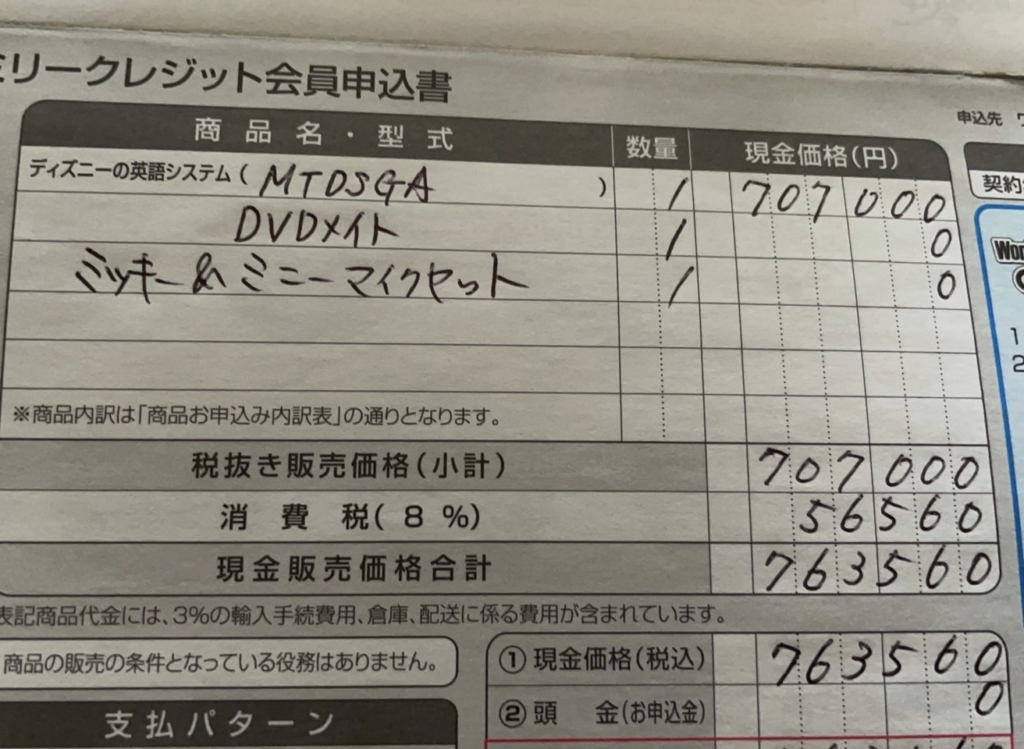 ミリークレジット会員申込書
申込先
商品名・型式 数量 現金価格(円)
契約
ディズニーの英語システム( MTDSGA ) 1 707000
DVDメイト 1 0
ミッキー&ミニーマイクセット 1 0
Wor
1
2
※商品内訳は「商品お申込み内訳表」の通りとなります。
税抜き販売価格(小計) 707000
消費税(8%) 56560
現金販売価格合計 763560
表記商品代金には、3%の輸入手続費用、倉庫、配送に係る費用が含まれています。
商品の販売の条件となっている役務はありません。
①現金価格(税込) 763560
②頭金(お申込金) 0
支払パターン